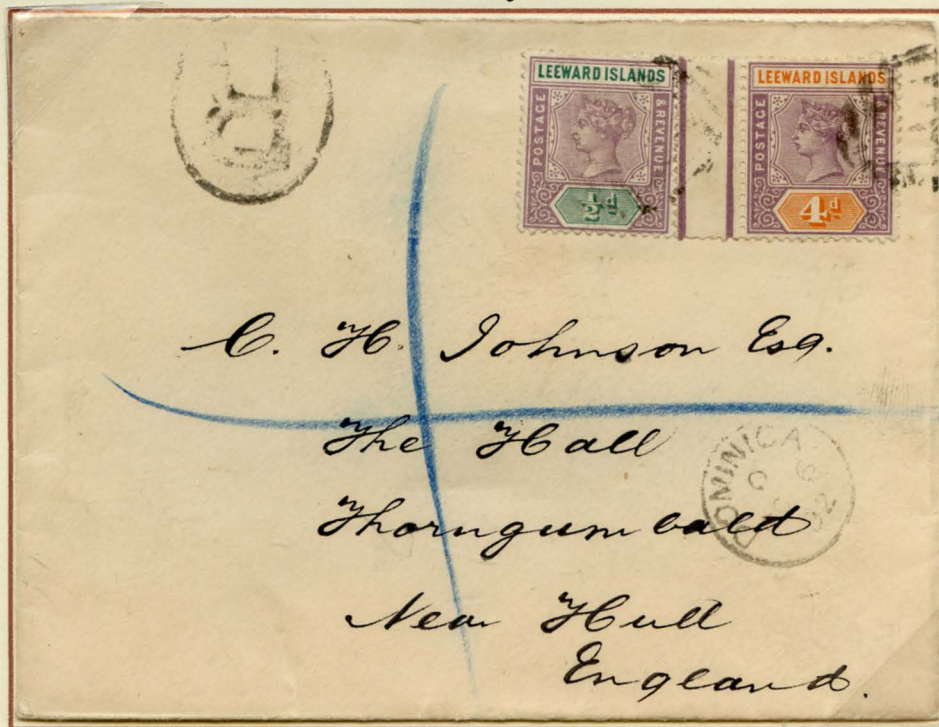 R
LEEWARD ISLANDS
POSTAGE
& REVENUE
½d
LEEWARD ISLANDS
POSTAGE
& REVENUE
4d
C. H. Johnson Esq.
The Hall
Thorngumbald
Near Hull
England.
DOMINICA